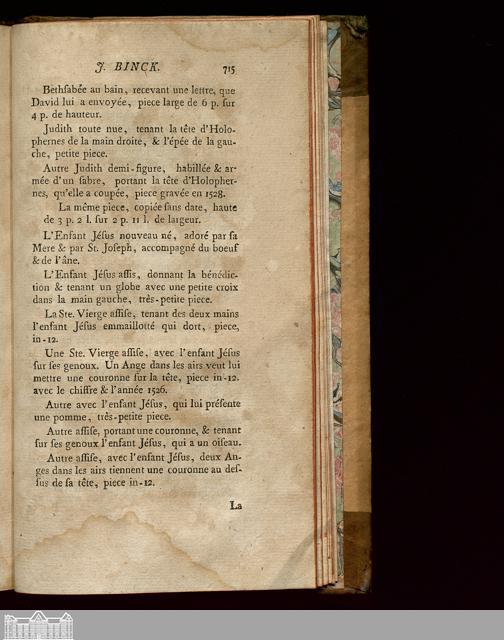 J. BINCK. 715
Bethſabée au bain, recevant une lettre, que
David lui a envoyée, piece large de 6 p. ſur
4 p. de hauteur.
Judith toute nue, tenant la tête d'Holo-
phernes de la main droite, & l'épée de la gau-
che, petite piece.
Autre Judith demi-figure, habillée & ar-
mée d'un ſabre, portant la tête d'Holopher-
nes, qu'elle a coupée, piece gravée en 1528.
La même piece, copiée ſans date, haute
de 3 p. 2 l. ſur 2 p. 11 l. de largeur.
L'Enfant Jéſus nouveau né, adoré par ſa
Mere & par St. Joſeph, accompagné du boeuf
& de l'âne.
L'Enfant Jéſus aſſis, donnant la bénédic-
tion & tenant un globe avec une petite croix
dans la main gauche, très-petite piece.
La Ste. Vierge aſſiſe, tenant des deux mains
l'enfant Jéſus emmaillotté qui dort, piece,
in-12.
Une Ste. Vierge aſſiſe, avec l'enfant Jéſus
ſur ſes genoux. Un Ange dans les airs veut lui
mettre une couronne ſur la tête, piece in-12.
avec le chiffre & l'année 1526.
Autre avec l'enfant Jéſus, qui lui préſente
une pomme, très-petite piece.
Autre aſſiſe, portant une couronne, & tenant
ſur ſes genoux l'enfant Jéſus, qui a un oiſeau.
Autre aſſiſe, avec l'enfant Jéſus, deux An-
ges dans les airs tiennent une couronne au deſ-
ſus de ſa tête, piece in-12.
La